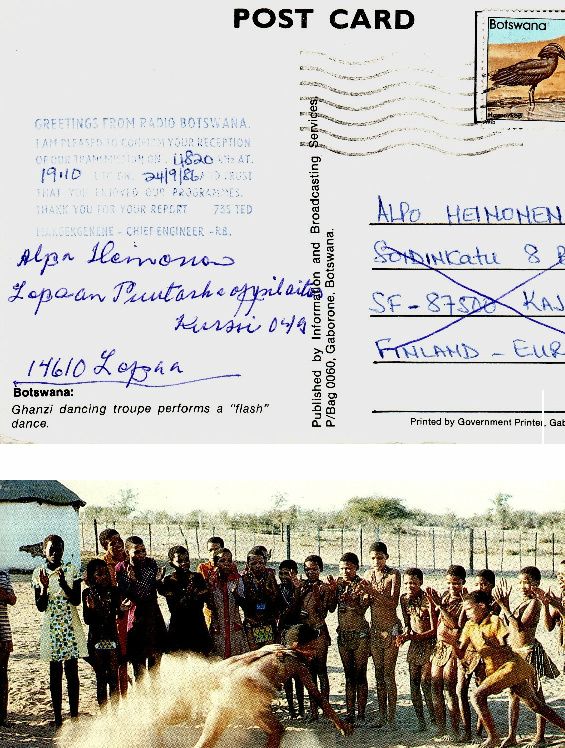 POST CARD
Botswana
GREETINGS FROM RADIO BOTSWANA.
I AM PLEASED TO CONFIRM YOUR RECEPTION
OF OUR TRANSMISSION ON . 4820 AT.
19.10 ON. 24/9/86 TRUST
THAT YOU ENJOYED OUR PROGRAMMES.
THANK YOU FOR YOUR REPORT 735 TED
- CHIEF ENGINEER -RB.
Alpo Heinonen
Lopaan
Kurssi 04/9
14610 Lopaa
Botswana:
Ghanzi dancing troupe performs a "flash"
dance.
Published by Information and Broadcasting Services,
P/Bag 0060, Gaborone, Botswana.
ALPO HEINONEN
SF-87500 KAJ
FINLAND - EUR
Printed by Government Printer, Gab